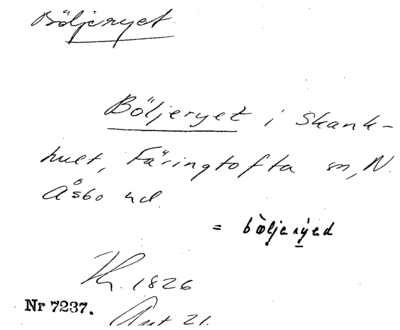 Böljeryet
Böljeryet i Skank-
hult, Färingtofta sn, N.
Åsbo hd.
= böljeryed
Kr. 1826
Nr 7237.
Ant 21.